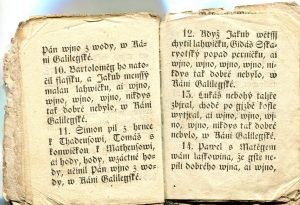 Pán wjno z wody, w Ká-
ni Galilegské.
10. Bartoloměg ho nato-
čil flassku, a Jakub menssý
malau lahwičku, ai wjno,
wjno, wjno, wjno, nikdys
tak dobré nebylo, w Káni
Galilegské.
11. Simon pil z hrnce
k Thadeusowi, Tomáš s
konwičkau k Matheusowi,
ai hody, hody, wzáctné ho-
dy, učinil Pán wjno z wo-
dy, w Káni Galilegské.
12. Když Jakub wětssý
chytil lahwičku, Gidáš Ska-
ryotský popad perničku, ai
wjno, wjno, wjno, wjno, ni-
kdys tak dobré nebylo, w
Káni Galilegské.
13. Lukáš nebohý taužě
zbjral, chodě po gizbě kosse
wytjral, ai wjno, wjno, wjno,
wjno, wjno, nikdys tak dobré
nebylo, w Káni Galilegské.
14. Pawel s Matěgem
wám laskowina, že gste ne-
pili dobrého wjna, ai wjno,